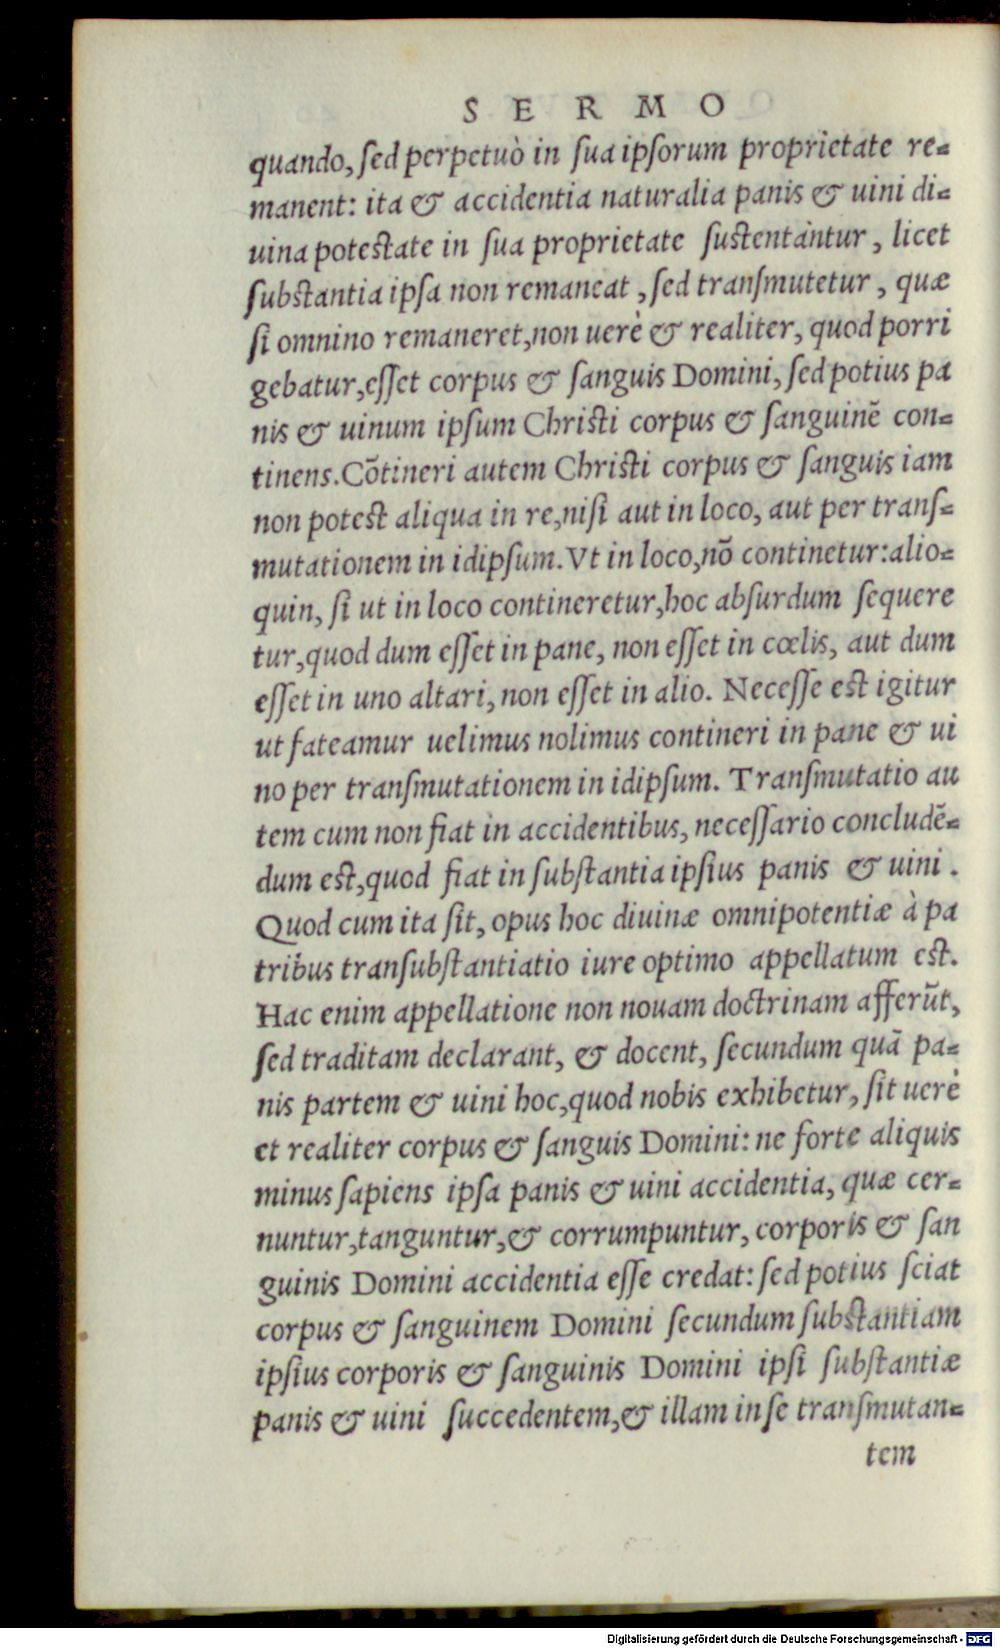 S E R M O
quando, sed perpetuò in sua ipsorum proprietate re-
manent: ita & accidentia naturalia panis & uini di-
uina potestate in sua proprietate sustentàntur, licet
substantia ipsa non remaneat, sed transmutetur, quæ
si omnino remaneret, non uerè & realiter, quod porri
gebatur, esset corpus & sanguis Domini, sed potius pa
nis & uinum ipsum Christi corpus & sanguinē con-
tinens. Cōtineri autem Christi corpus & sanguis iam
non potest aliqua in re, nisi aut in loco, aut per trans-
mutationem in idipsum. Vt in loco, nō continetur: alio-
quin, si ut in loco contineretur, hoc absurdum sequere
tur, quod dum esset in pane, non esset in cœlis, aut dum
esset in uno altari, non esset in alio. Necesse est igitur
ut fateamur uelimus nolimus contineri in pane & ui
no per transmutationem in idipsum. Transmutatio au
tem cum non fiat in accidentibus, necessario concludē-
dum est, quod fiat in substantia ipsius panis & uini.
Quod cum ita sit, opus hoc diuinæ omnipotentiæ à pa
tribus transubstantiatio iure optimo appellatum est.
Hac enim appellatione non nouam doctrinam afferūt,
sed traditam declarant, & docent, secundum quā pa-
nis partem & uini hoc, quod nobis exhibetur, sit uerè
et realiter corpus & sanguis Domini: ne forte aliquis
minus sapiens ipsa panis & uini accidentia, quæ cer-
nuntur, tanguntur, & corrumpuntur, corporis & san
guinis Domini accidentia esse credat: sed potius sciat
corpus & sanguinem Domini secundum substantiam
ipsius corporis & sanguinis Domini ipsi substantiæ
panis & uini succedentem, & illam in se transmutan-
tem
Digitalisierung gefördert durch die Deutsche Forschungsgemeinschaft - DFG